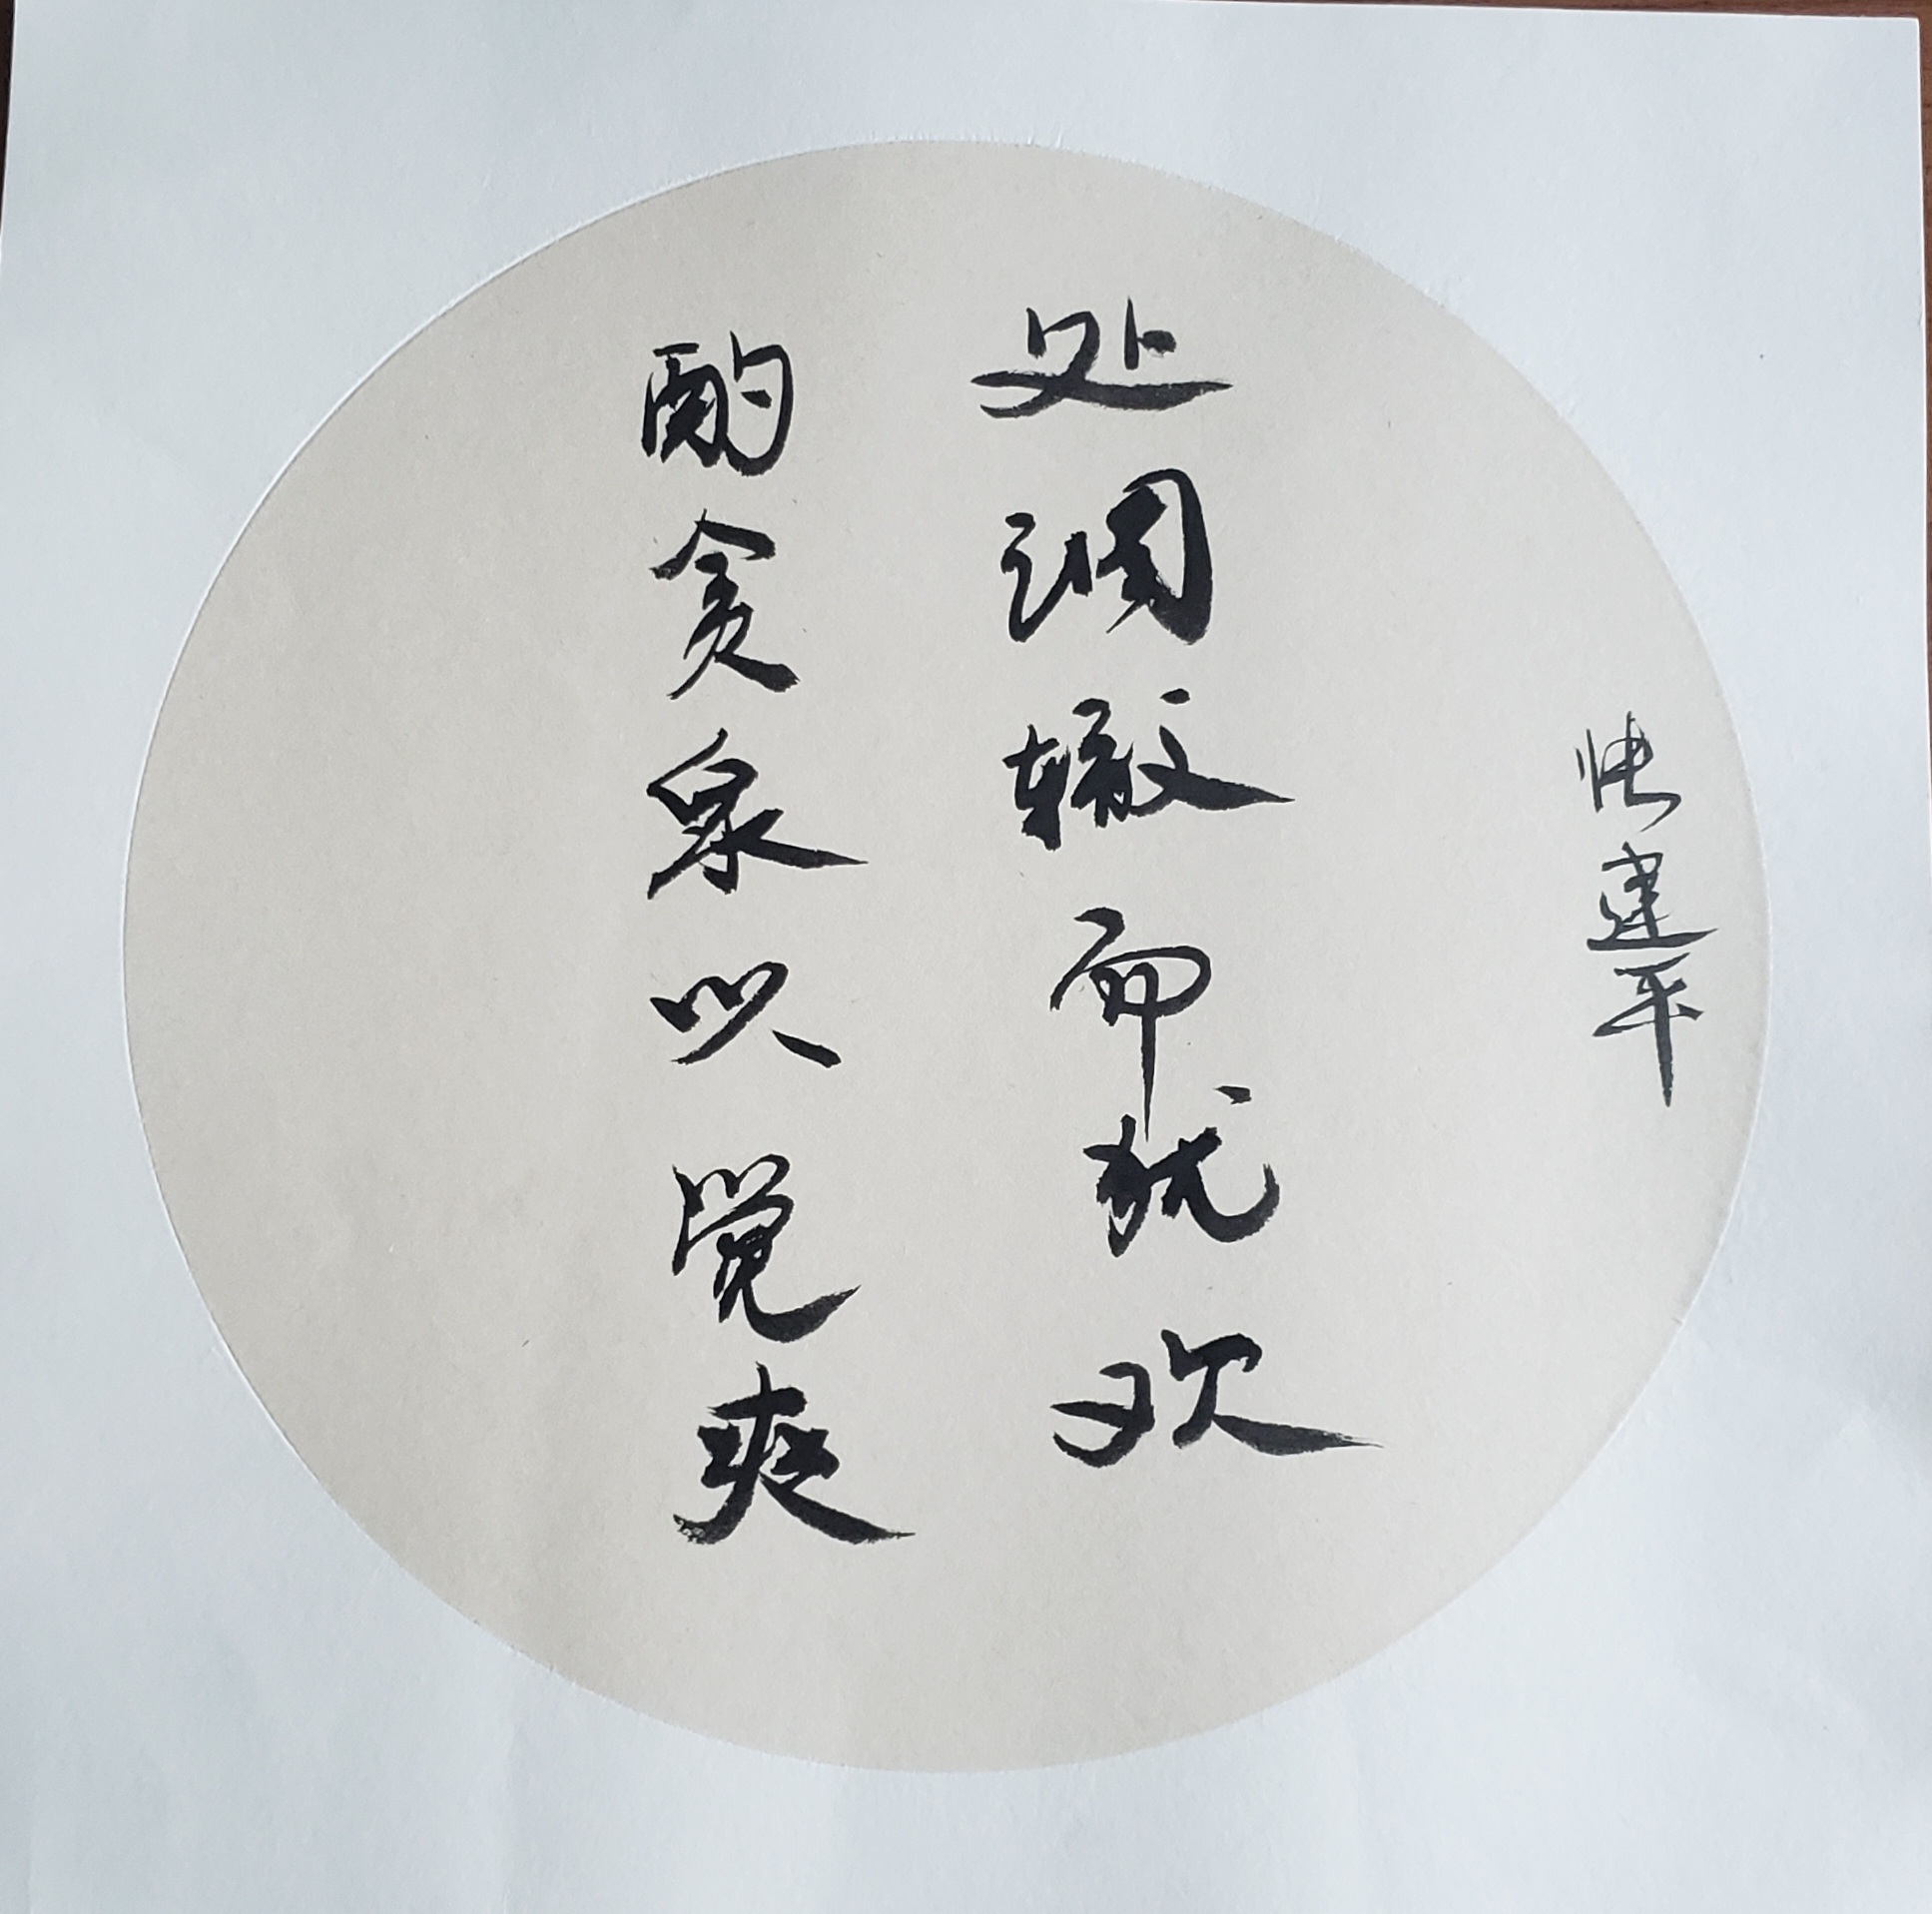 酌贪泉以觉爽
处涸辙而犹欢
张建平